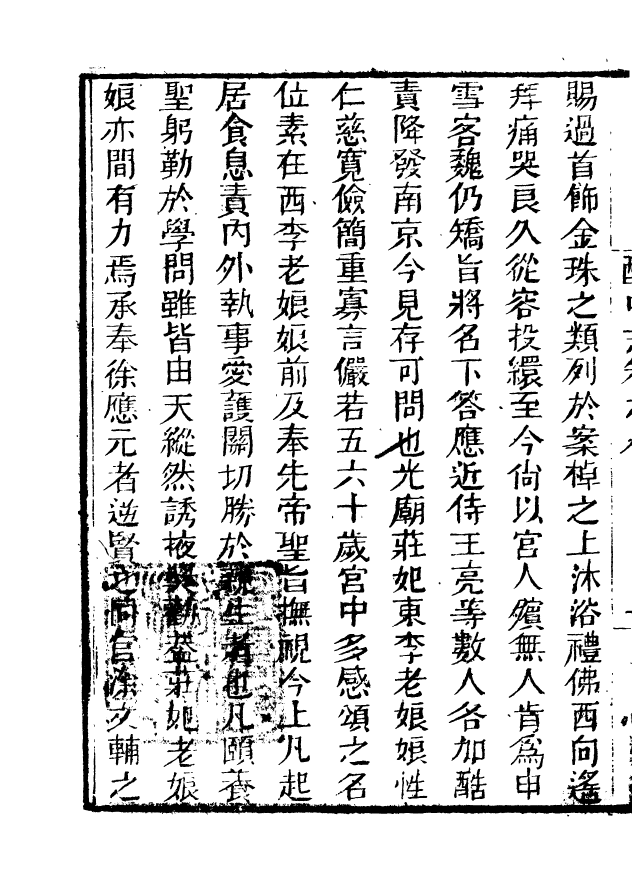 賜過首飾金珠之類列於案棹之上沐浴禮佛西向遙
拜痛哭良久從容投繯至今尙以宮人殯無人肯爲申
雪客魏仍矯旨將名下答應近侍王亮等數人各加酷
責降發南京今見存可問也光廟莊妃東李老娘娘性
仁慈寬儉簡重寡言儼若五六十歲宮中多感頌之名
位素在西李老娘娘前及奉先帝聖旨撫視今上凡起
居食息責內外執事愛護關切勝於親生者也凡頤養
聖躬勤於學問雖皆由天縱然誘掖獎勸蓋莊妃老娘
娘亦間有力焉承奉徐應元者逆賢之同官涂文輔之